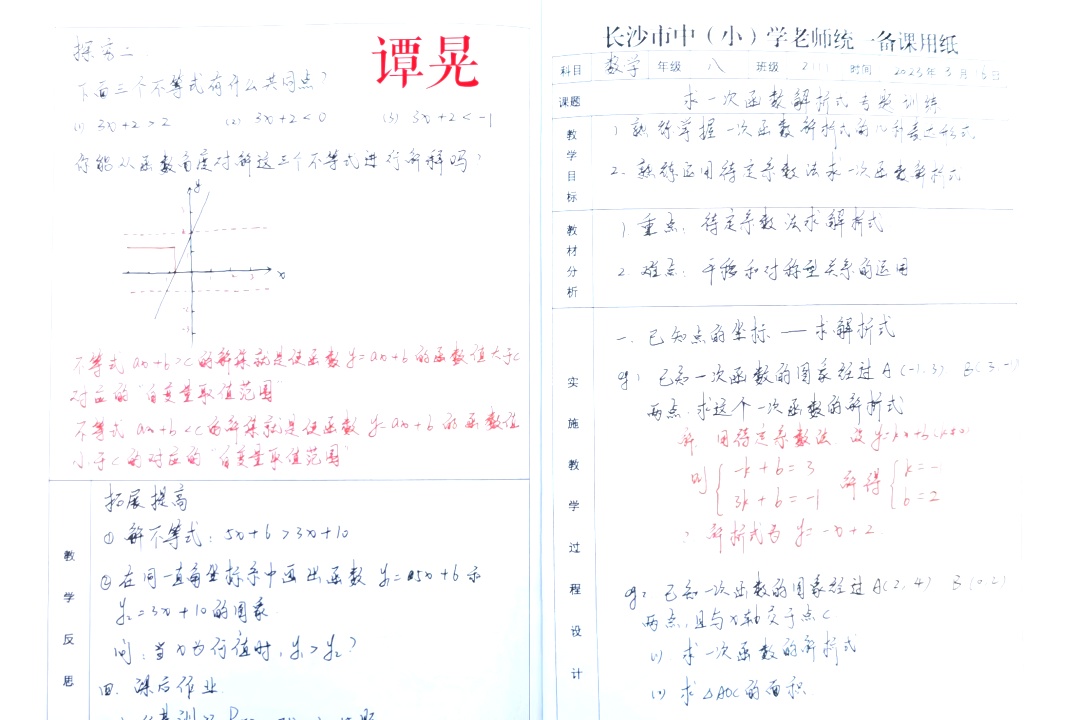 探究二
谭晃
下面三个不等式有什么共同点?
(1) 3x+2>2 (2) 3x+2<0 (3) 3x+2<-1
你能从函数角度对解这三个不等式进行解释吗?
y
x
不等式 ax+b>c的解集就是使函数y=ax+b的函数值大于c
对应的"自变量取值范围"
不等式 ax+b<c的解集就是使函数 y=ax+b 的函数值
小于c的对应的"自变量取值范围"
教学反思
拓展提高
① 解不等式: 5x+6>3x+10
② 在同一直角坐标系中画出函数 y₁=5x+6 和
y₂=3x+10的图象
问:当x为何值时, y₁>y₂?
四. 课后作业
长沙市中(小)学老师统一备课用纸
科目 数学 年级 八 班级 时间 2023年3月16日
课题 求一次函数解析式专题训练
教学目标
1 熟练掌握一次函数解析式的几种表达形式
2. 熟练运用待定系数法求一次函数解析式
教材分析
1 重点: 待定系数法求解析式
2. 难点: 平移和对称型关系的运用
实施教学过程设计
一. 已知点的坐标 — 求解析式
eg1 已知一次函数的图象经过A(-1,3) B(3,-1)
两点,求这个一次函数的解析式
解: 用待定系数法 设y=kx+b(k≠0)
则 { -k+b=3 解得 { k=-
3k+b=-1 b=2
解析式为 y=-x+2
eg2 已知一次函数的图象经过A(2,4) B(0,2)
两点,且与x轴交于点C
(1) 求一次函数的解析式
(2) 求△AOC的面积